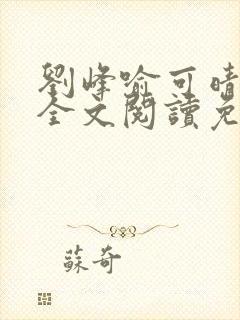 劉峰喻可晴
全文閱讀免
蘇奇